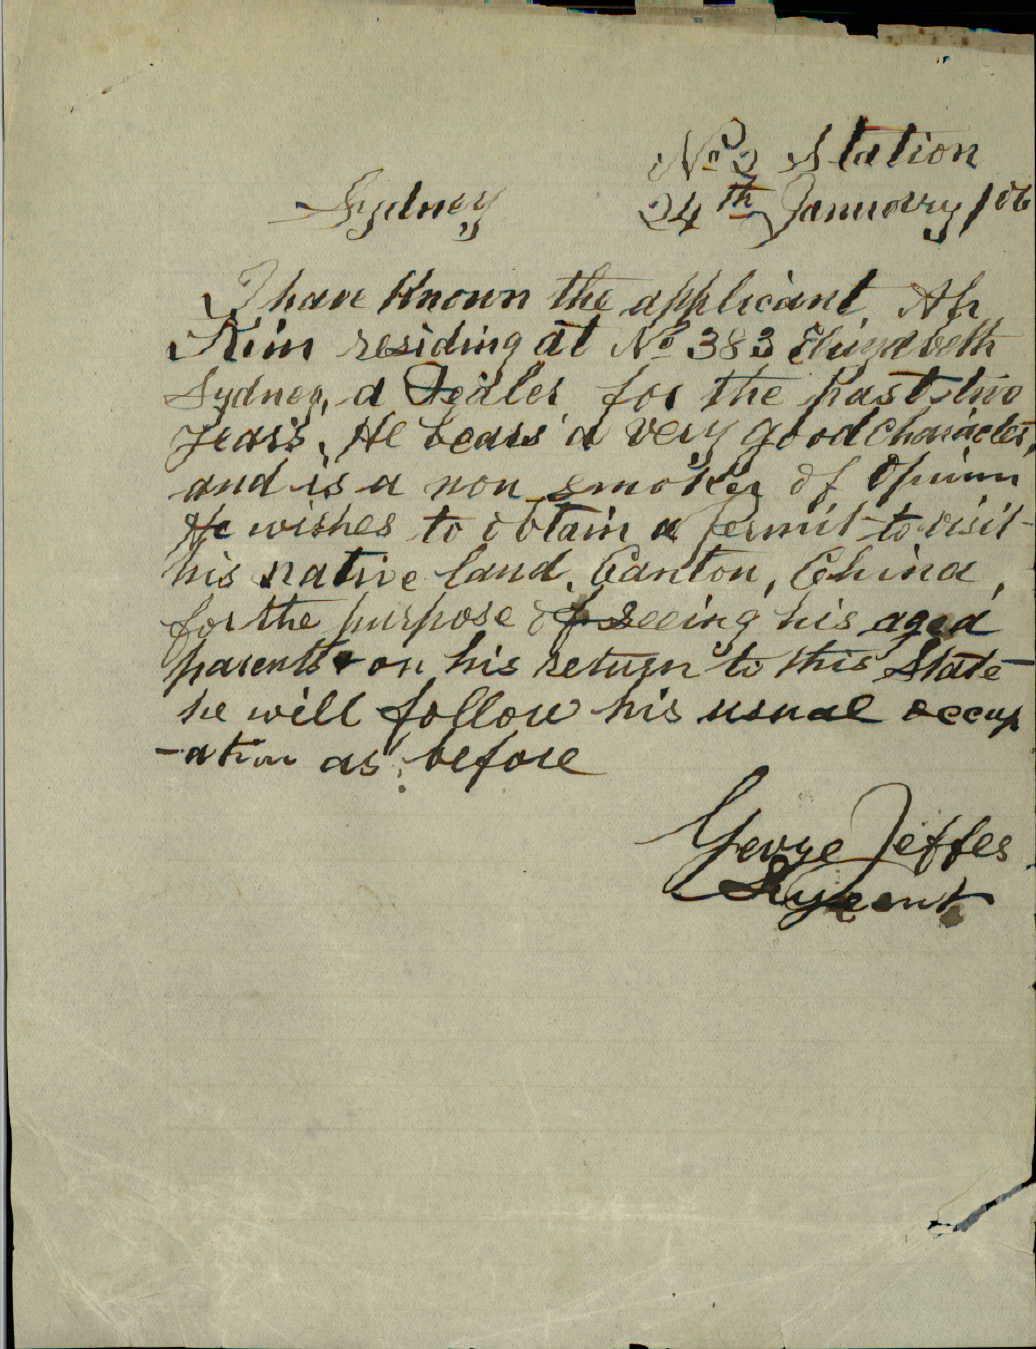 No 3 Station
Sydney 24th January /06
I have Known the applicant, Ah
Kim residing at No 383 Elizabeth
Sydney, a Dealer for the past two
years. He bears a very good character,
and is a non smoker of Opium
He wishes to obtain a permit to visit
his native land, Canton, China,
for the purpose of seeing his aged
parents & on his return to this State
he will follow his usual occup
-ation as before
George Jeffes
Sergeant